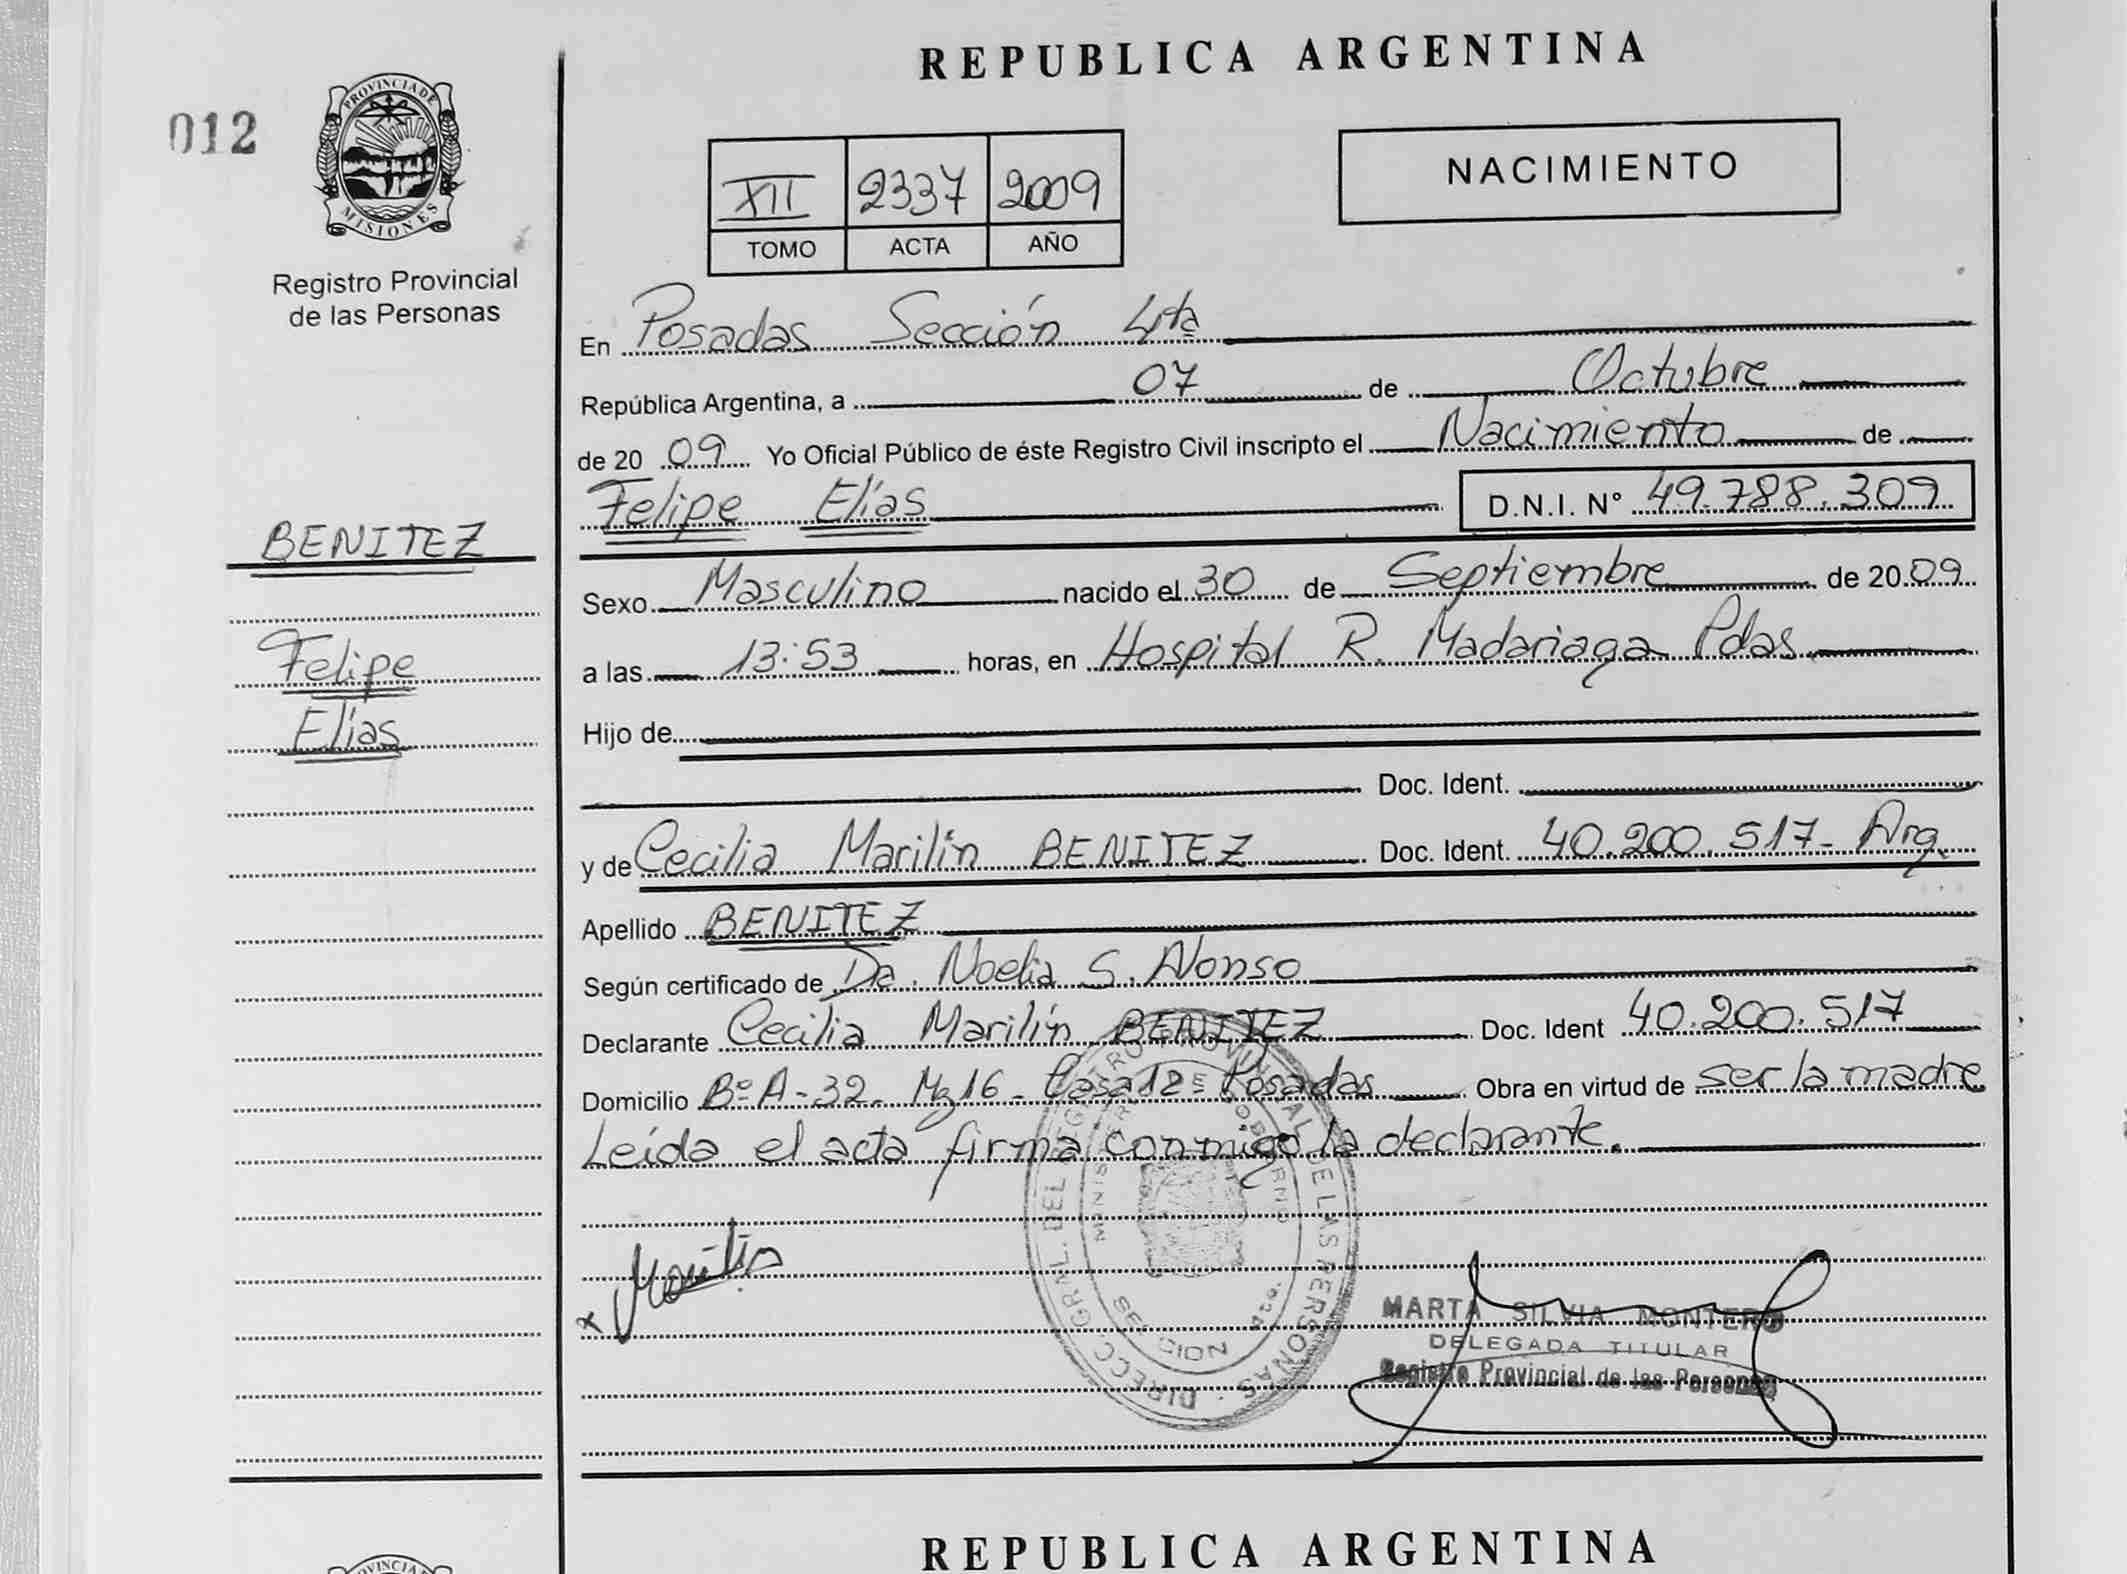 REPUBLICA ARGENTINA
012
PROVINCIA DE
MISIONES
Registro Provincial
de las Personas
NACIMIENTO
XII 2337 2009
TOMO ACTA AÑO
En Posadas Sección 4ta
República Argentina, a 07 de Octubre
de 2009 Yo Oficial Público de éste Registro Civil inscripto el Nacimiento de
Felipe Elías D.N.I. N° 49.788.309
BENITEZ
Felipe
Elías
Sexo Masculino nacido el 30 de Septiembre de 2009
a las 13:53 horas, en Hospital R. Madariaga Pdas
Hijo de
Doc. Ident.
y de Cecilia Marilín BENITEZ Doc. Ident. 40.200.517- Arg.
Apellido BENITEZ
Según certificado de Da. Noelia S. Alonso
Declarante Cecilia Marilín BENITEZ Doc. Ident 40.200.517
Domicilio Bº A-32- Mz 16- Casa 12- Posadas Obra en virtud de ser la madre
Leída el acta firma conmigo la declarante.
x Marilin
DIRECC. GRAL. DEL REGISTRO PROVINCIAL DE LAS PERSONAS
MARTA SILVIA MONTERO
DELEGADA TITULAR
Registro Provincial de las Personas
REPUBLICA ARGENTINA